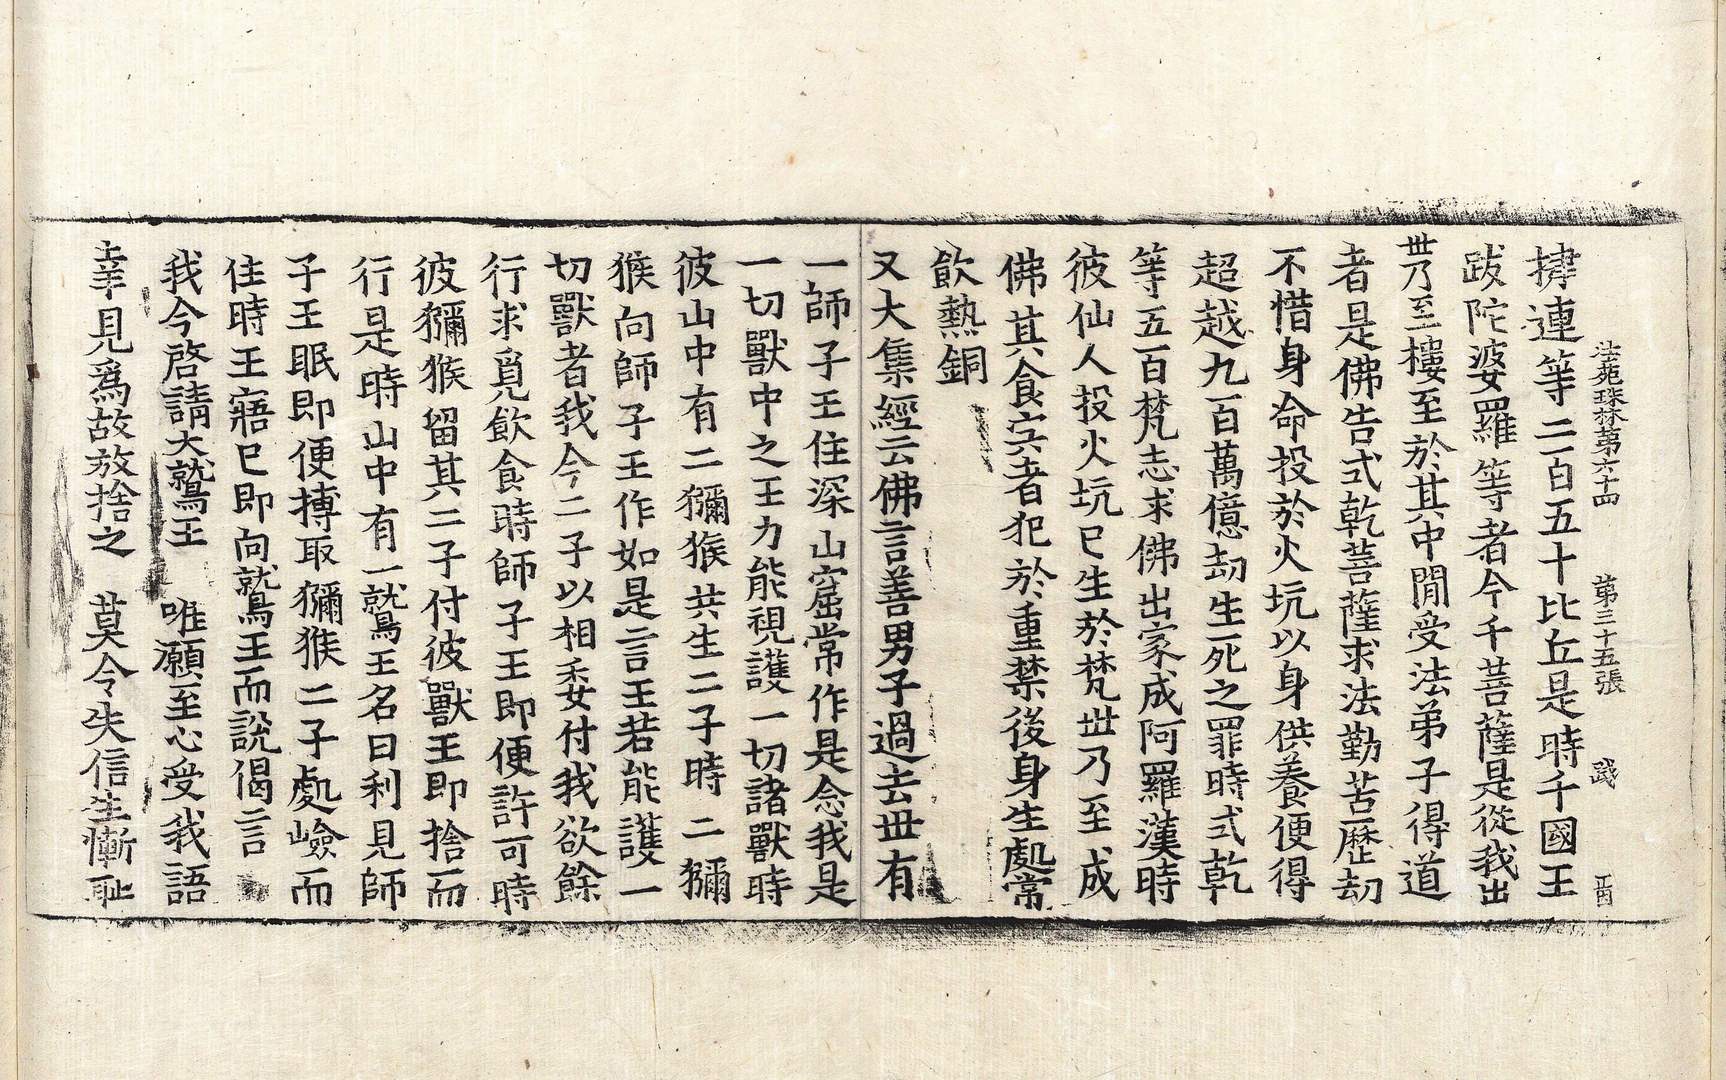 法苑珠林第六十四 第三十五張 踐 丁酉
揵連等二百五十比丘是時千國王
跋陀婆羅等者今千菩薩是從我出
世乃至樓至於其中閒受法弟子得道
者是佛告式乾菩薩求法勤苦歷劫
不惜身命投於火坑以身供養便得
超越九百萬億劫生死之罪時式乾
等五百梵志求佛出家成阿羅漢時
彼仙人投火坑已生於梵世乃至成
佛其食宍者犯於重禁後身生處常
飲熱銅
又大集經云佛言善男子過去世有
一師子王住深山窟常作是念我是
一切獸中之王力能視護一切諸獸時
彼山中有二獼猴共生二子時二獼
猴向師子王作如是言王若能護一
切獸者我今二子以相委付我欲餘
行求覓飲食時師子王即便許可時
彼獼猴留其二子付彼獸王即捨而
行是時山中有一鷲王名曰利見師
子王眠即便搏取獼猴二子處嶮而
住時王寤已即向鷲王而說偈言
我今啓請大鷲王 唯願至心受我語
幸見爲故放捨之 莫令失信生慚恥